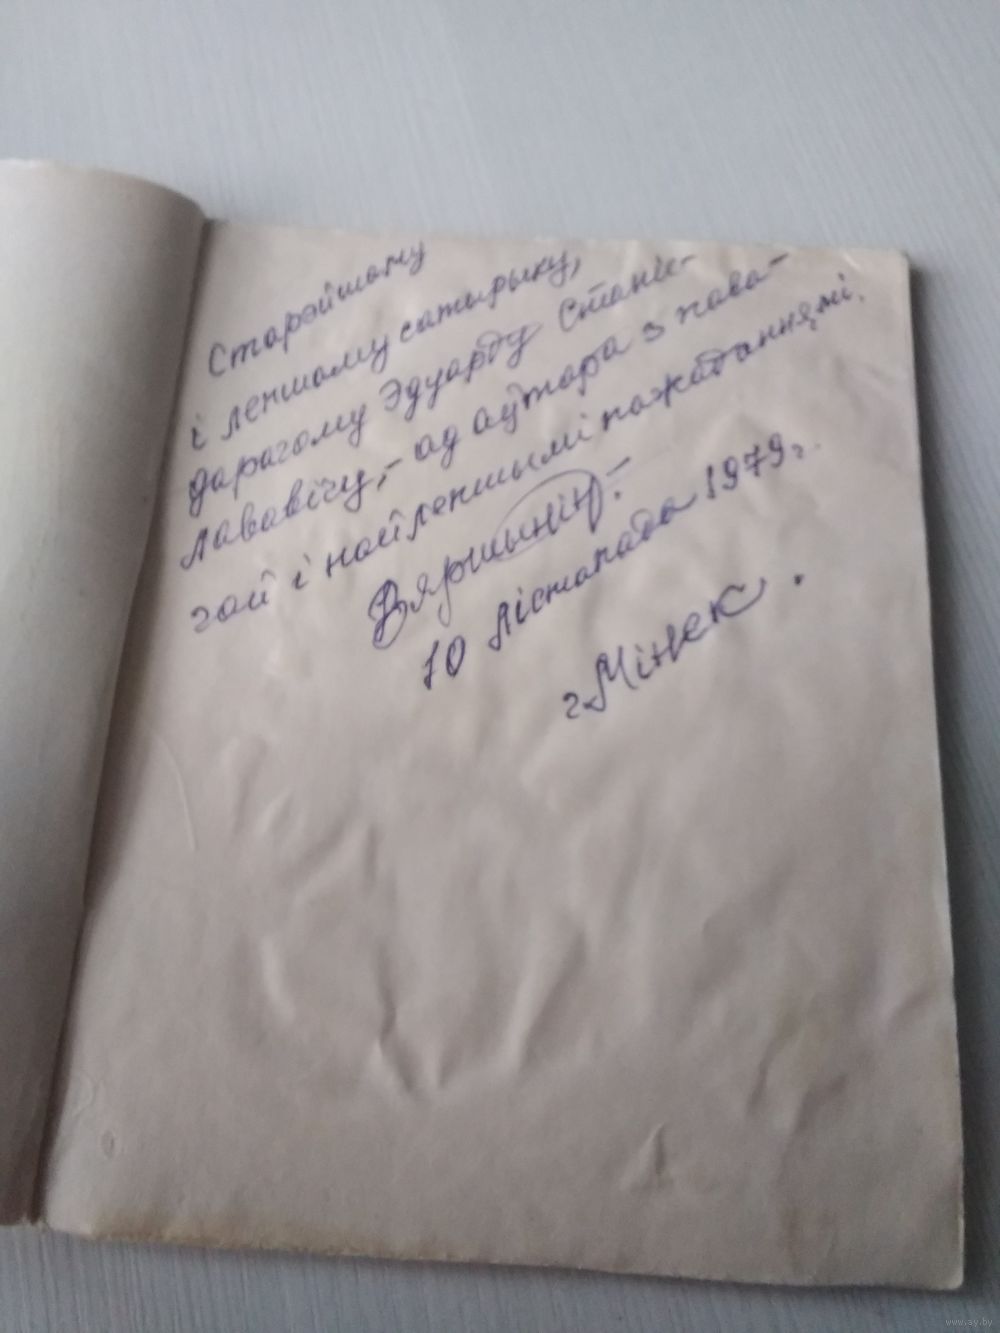 Старэйшаму
і лепшаму сатырыку,
дарагому Эдуарду Стані-
лававічу, - ад аўтара з пава-
гай і найлепшымі пажаданнямі.
Вяршынін.
10 лістапада 1979 г.
г. Мінск.
www.ay.by